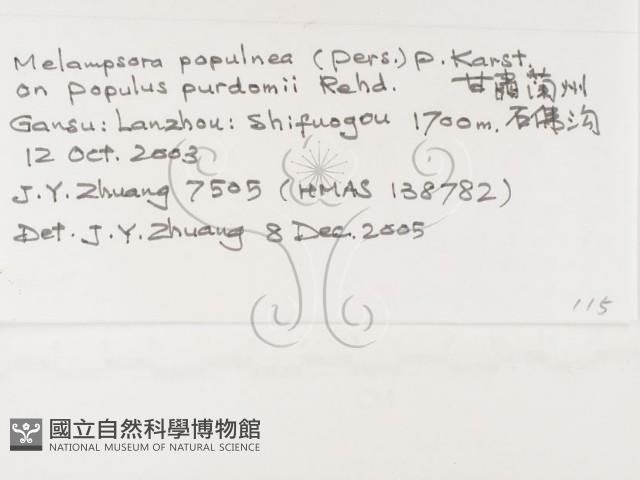 Melampsora populnea (Pers.) P. Karst.
on Populus purdomii Rehd. 甘肅蘭州
Gansu: Lanzhou: Shifuogou 1700m. 石佛沟
12 Oct. 2003
J.Y. Zhuang 7505 (HMAS 138782)
Det. J.Y. Zhuang 8 Dec. 2005
115
國立自然科學博物館
NATIONAL MUSEUM OF NATURAL SCIENCE